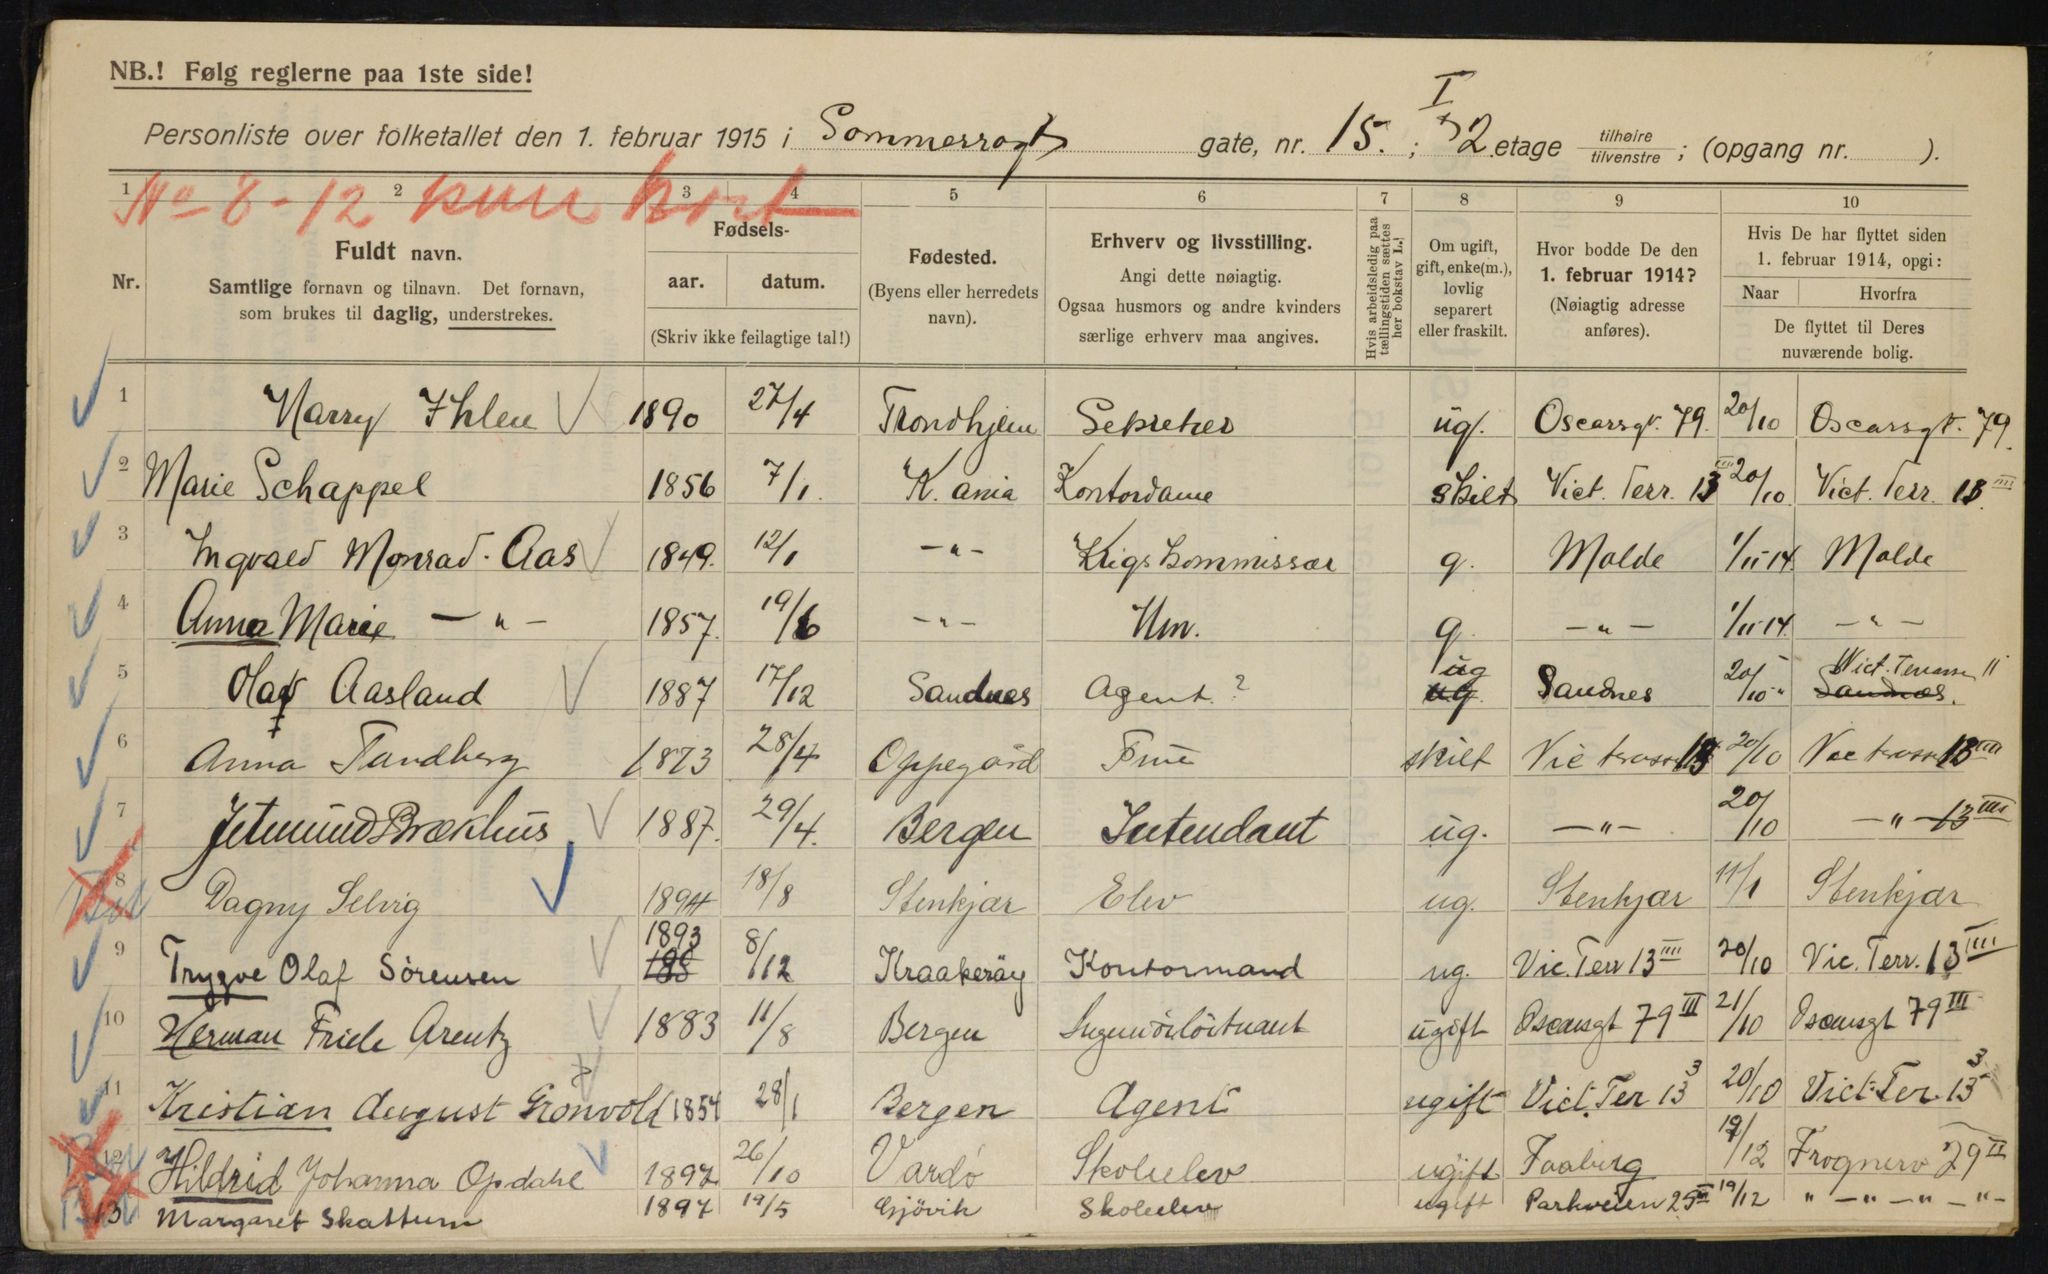 NB.! Følg reglerne paa 1ste side!
Personliste over folketallet den 1. februar 1915 i Sommerrogt gate, nr. 15. ; I 2 etage tilhøire tilvenstre ; (opgang nr. ).
No 8-12 kun kort
1 2 3 4 5 6 7 8 9 10
Nr.
Fuldt navn.
Samtlige fornavn og tilnavn. Det fornavn,
som brukes til daglig, understrekes.
Fødsels-
aar. datum.
(Skriv ikke feilagtige tal!)
Fødested.
(Byens eller herredets
navn).
Erhverv og livsstilling.
Angi dette nøiagtig.
Ogsaa husmors og andre kvinders
særlige erhverv maa angives.
Hvis arbeidsledig paa
tællingstiden sættes
her bokstav L.!
Om ugift,
gift, enke(m.),
lovlig
separert
eller fraskilt.
Hvor bodde De den
1. februar 1914?
(Nøiagtig adresse
anføres).
Hvis De har flyttet siden
1. februar 1914, opgi:
Naar Hvorfra
De flyttet til Deres
nuværende bolig.
1 Harry Ihlen 1890 27/4 Trondhjem Sekretær ug. Oscarsgt. 79. 20/10 Oscarsgt. 79.
2 Marie Schappel 1856 7/1. K.ania Kontordame skilt Vict. Terr. 13 III 20/10. Vict. Terr. 13 III
3 Ingvald Monrad-Aas 1849. 12/1 -"- Krigskommissær g. Molde 1/11-14. Molde
4 Anna Marie -"- 1857. 19/6 -"- Hm. g. -"- 1/11-14. -"-
5 Olaf Aasland 1887 17/12 Sandnes Agent ? ug ug. Sandnes 20/10 Vict. Terrasse 11 Sandnes.
6 Anna Tandberg 1873 28/4 Oppegård Frue skilt Vic terasse 13 20/10 Vic terasse 13 IIII
7 Jetmund Brækhus 1887. 29/4. Bergen Intendant ug. -"- 20/10 -"- 13 III
8 Dagny Selvig 1894 18/8 Stenkjær Elev ug. Stenkjær 11/1 Stenkjær
9 Trygve Olaf Sørensen 1893 188 8/12 Kraakerøy Kontormand ug. Vic. Terr 13 IIII 20/10 Vic. Terr. 13 IIII
10 Herman Friele Arentz 1883 11/8 Bergen Ingeniörlöitnant ugift Oscarsgt 79 III 21/10 Oscarsgt 79 III
11 Kristian August Grönvold 1854 28/1 Bergen Agent ugift Vict. Ter 13 3 20/10 Vict. Ter. 13 3
12 Hildrid Johanna Opdahl 1897 26/10 Vardö Skoleelev ugift Faaberg 19/12 Frognerv 29 II
13 Margaret Skattum 1897 19/5 Gjövik Skoleelev ugift Parkveien 25 III 19/12 " -"-"-"-